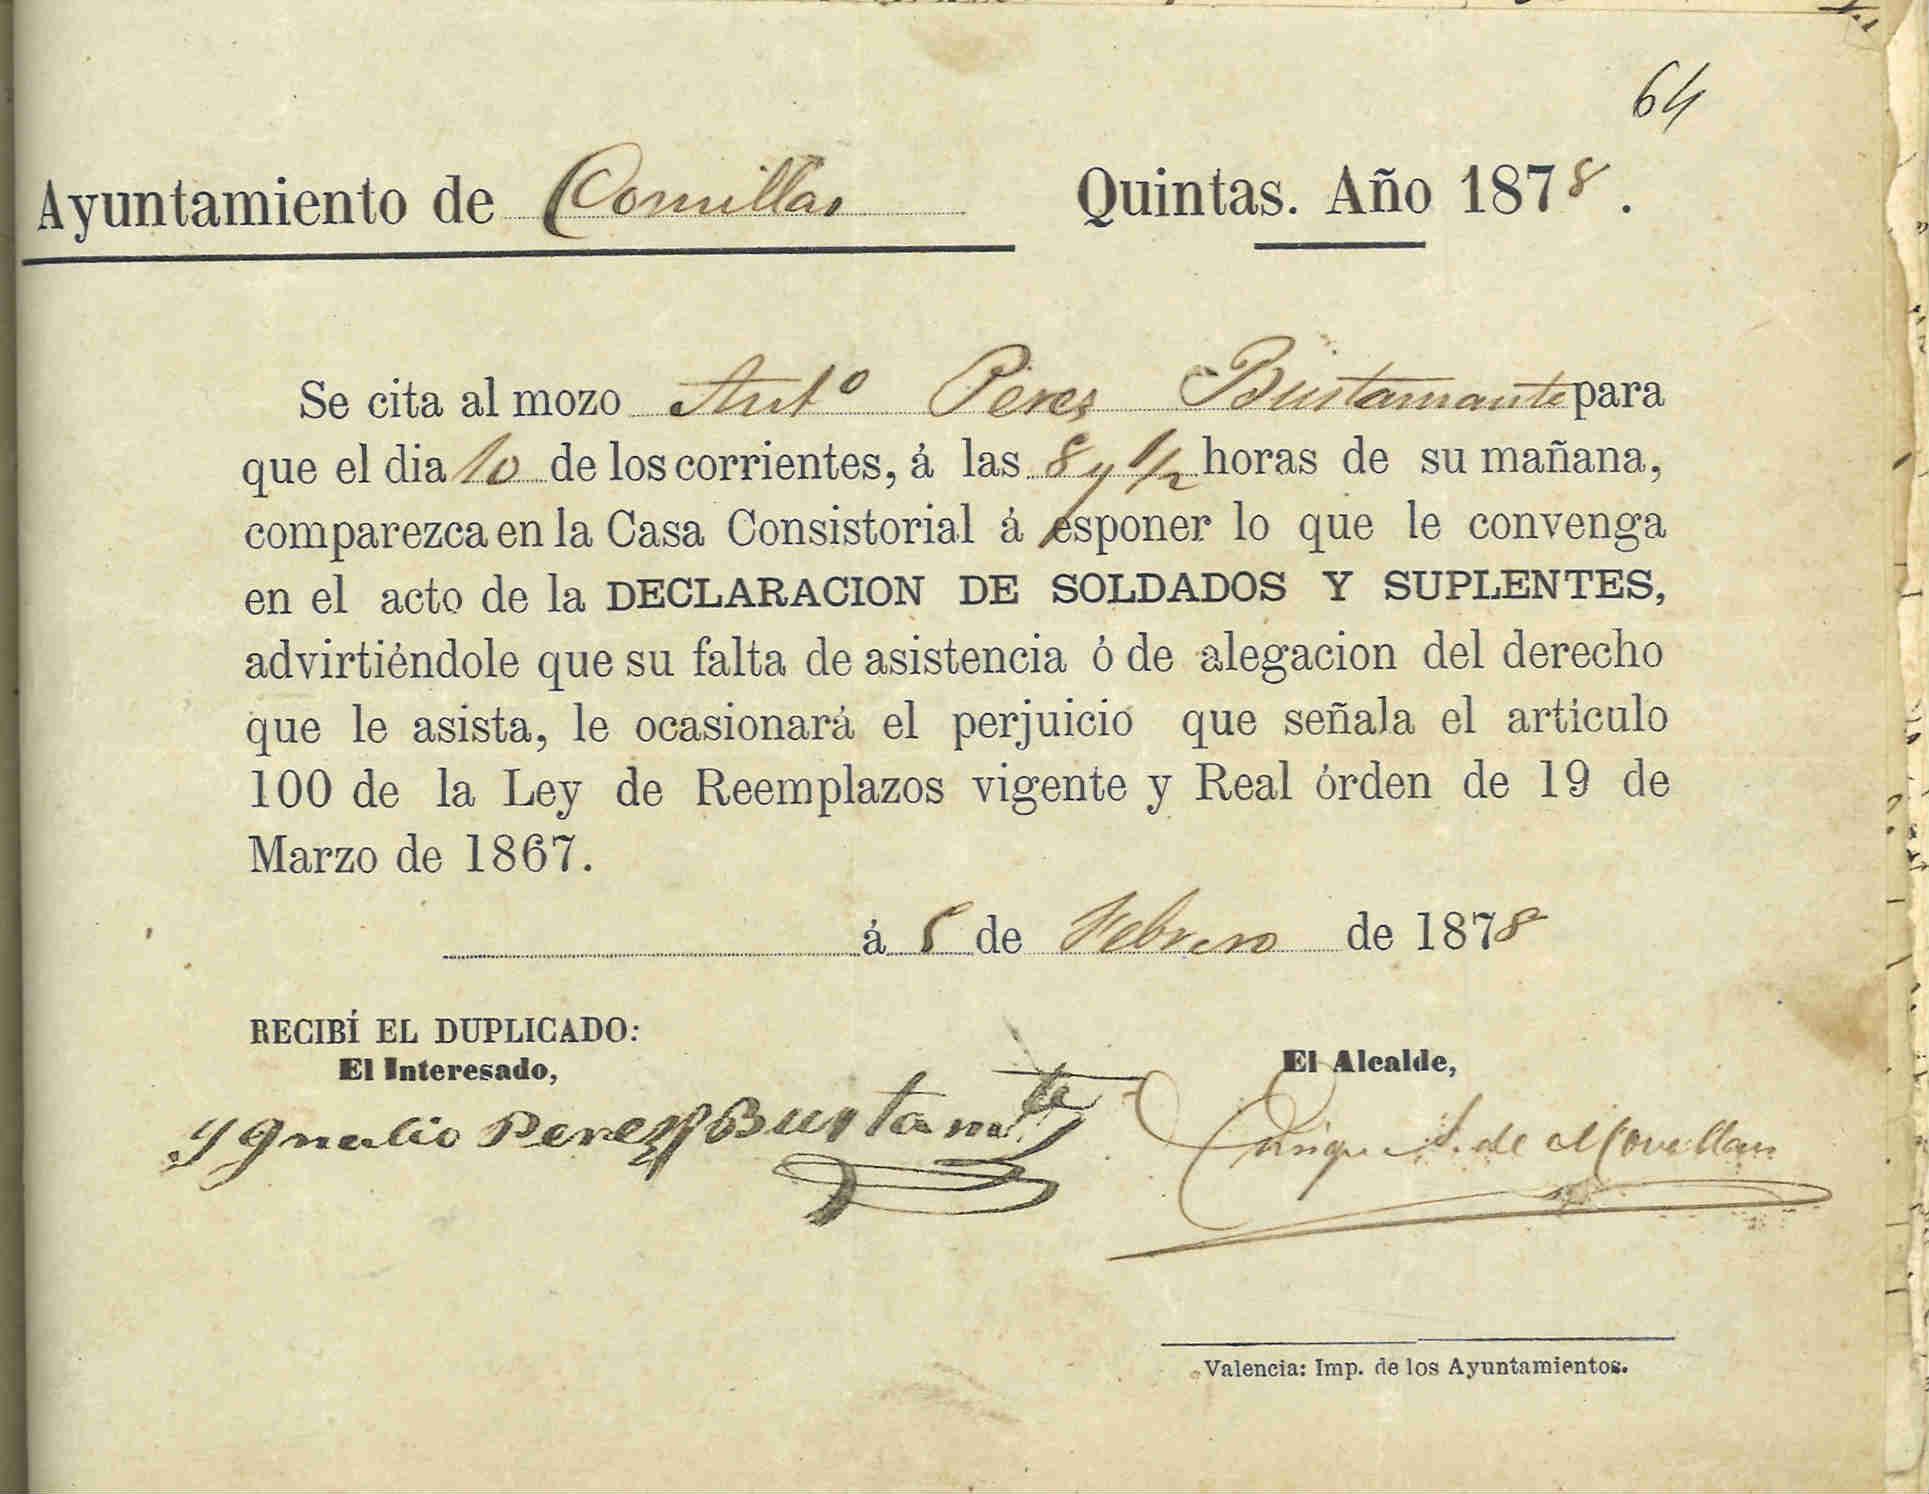 64
Ayuntamiento de Comillas Quintas. Año 1878.
Se cita al mozo Antº Perez Bustamante para
que el dia 10 de los corrientes, á las 8 y 1/2 horas de su mañana,
comparezca en la Casa Consistorial á esponer lo que le convenga
en el acto de la DECLARACION DE SOLDADOS Y SUPLENTES,
advirtiéndole que su falta de asistencia ó de alegacion del derecho
que le asista, le ocasionará el perjuicio que señala el artículo
100 de la Ley de Reemplazos vigente y Real órden de 19 de
Marzo de 1867.
á de Febrero de 1878
RECIBÍ EL DUPLICADO:
El Interesado,
El Alcalde,
Ygnacio Perez Bustamte
Enrique S. de Movellan
Valencia: Imp. de los Ayuntamientos.